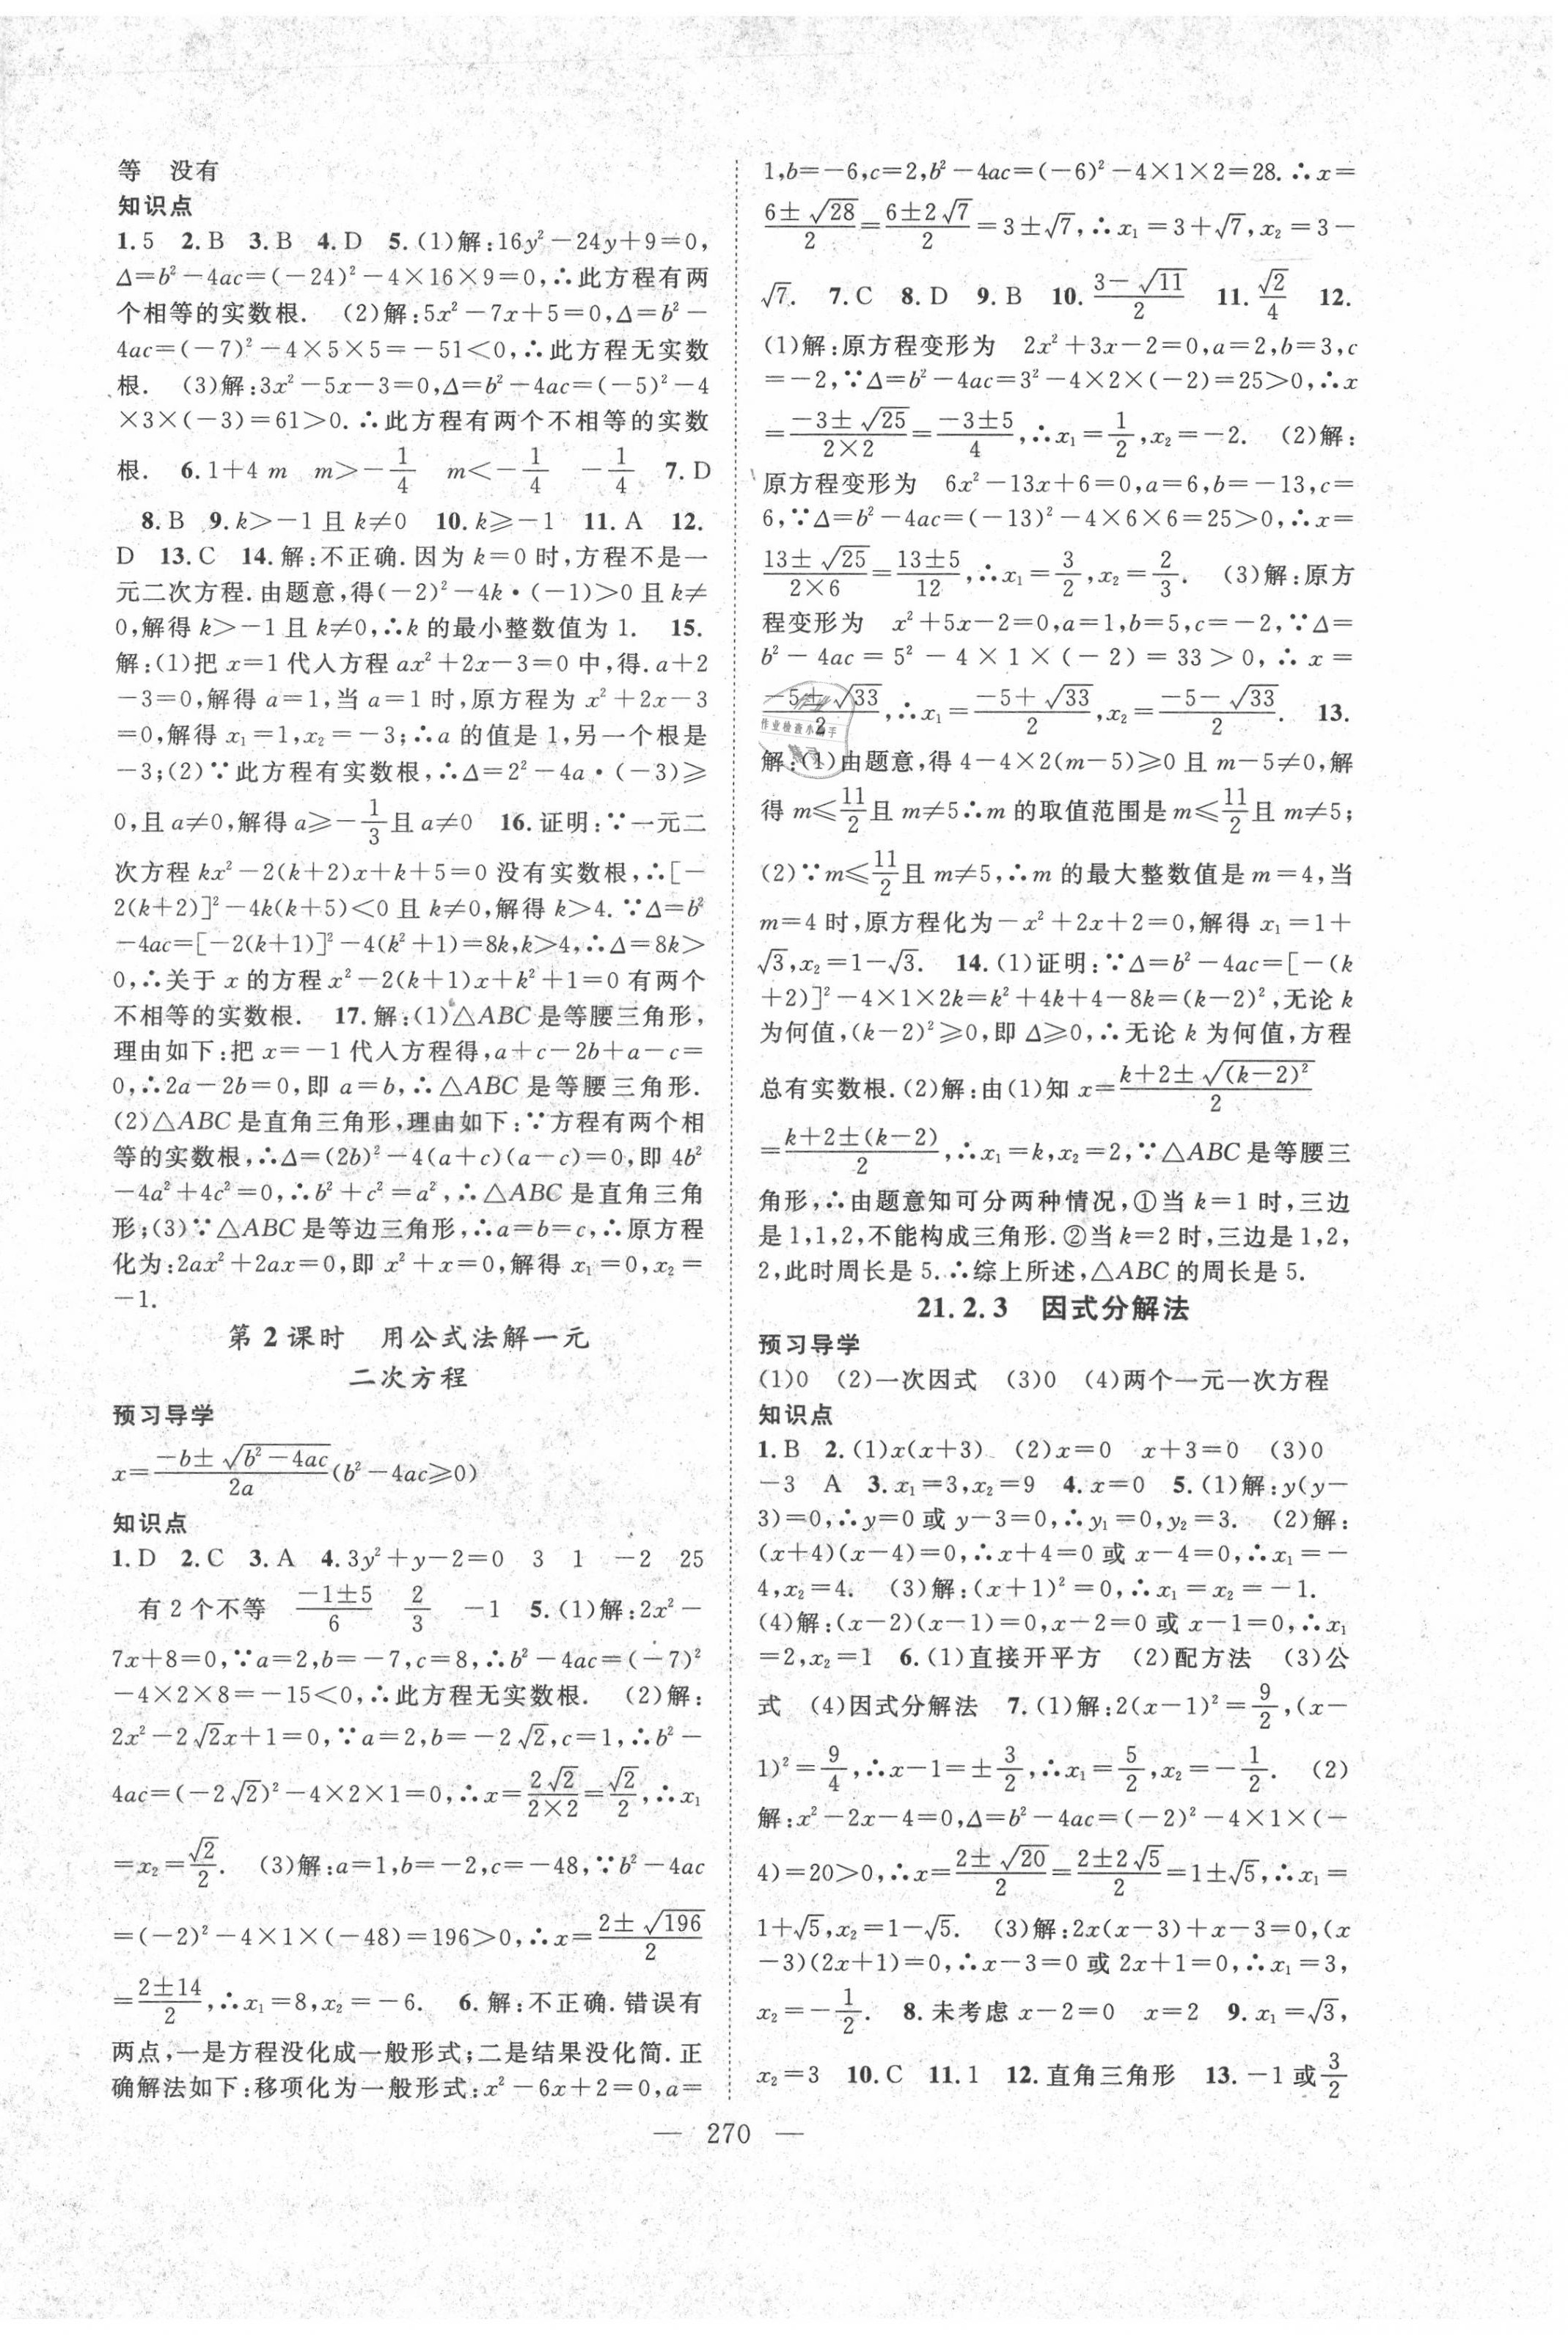 等 没有
知识点
1.5 2.B 3.B 4.D 5.(1)解:16y²-24y+9=0,
Δ=b²-4ac=(-24)²-4×16×9=0,∴此方程有两
个相等的实数根. (2)解:5x²-7x+5=0,Δ=b²-
4ac=(-7)²-4×5×5=-51<0,∴此方程无实数
根. (3)解:3x²-5x-3=0,Δ=b²-4ac=(-5)²-4
×3×(-3)=61>0.∴此方程有两个不相等的实数
根. 6.1+4m m>-1/4 m<-1/4 -1/4 7.D
8.B 9.k>-1且k≠0 10.k≥-1 11.A 12.
D 13.C 14.解:不正确.因为k=0时,方程不是一
元二次方程.由题意,得(-2)²-4k·(-1)>0且k≠
0,解得k>-1且k≠0,∴k的最小整数值为1. 15.
解:(1)把x=1代入方程ax²+2x-3=0中,得.a+2
-3=0,解得a=1,当a=1时,原方程为x²+2x-3
=0,解得x₁=1,x₂=-3;∴a的值是1,另一个根是
-3;(2)∵此方程有实数根,∴Δ=2²-4a·(-3)≥
0,且a≠0,解得a≥-1/3且a≠0 16.证明:∵一元二
次方程kx²-2(k+2)x+k+5=0没有实数根,∴[-
2(k+2)]²-4k(k+5)<0且k≠0,解得k>4.∵Δ=b²
-4ac=[-2(k+1)]²-4(k²+1)=8k,k>4,∴Δ=8k>
0,∴关于x的方程x²-2(k+1)x+k²+1=0有两个
不相等的实数根. 17.解:(1)△ABC是等腰三角形,
理由如下:把x=-1代入方程得,a+c-2b+a-c=
0,∴2a-2b=0,即a=b,∴△ABC是等腰三角形.
(2)△ABC是直角三角形,理由如下:∵方程有两个相
等的实数根,∴Δ=(2b)²-4(a+c)(a-c)=0,即4b²
-4a²+4c²=0,∴b²+c²=a²,∴△ABC是直角三角
形;(3)∵△ABC是等边三角形,∴a=b=c,∴原方程
化为:2ax²+2ax=0,即x²+x=0,解得x₁=0,x₂=
-1.
第2课时 用公式法解一元
二次方程
预习导学
x=(-b±√(b²-4ac))/2a(b²-4ac≥0)
知识点
1.D 2.C 3.A 4.3y²+y-2=0 3 1 -2 25
有2个不等 (-1±5)/6 2/3 -1 5.(1)解:2x²-
7x+8=0,∵a=2,b=-7,c=8,∴b²-4ac=(-7)²
-4×2×8=-15<0,∴此方程无实数根. (2)解:
2x²-2√2x+1=0,∵a=2,b=-2√2,c=1,∴b²-
4ac=(-2√2)²-4×2×1=0,∴x=2√2/(2×2)=√2/2,∴x₁
=x₂=√2/2. (3)解:a=1,b=-2,c=-48,∵b²-4ac
=(-2)²-4×1×(-48)=196>0,∴x=(2±√196)/2
=(2±14)/2,∴x₁=8,x₂=-6. 6.解:不正确.错误有
两点,一是方程没化成一般形式;二是结果没化简.正
确解法如下:移项化为一般形式:x²-6x+2=0,a=
1,b=-6,c=2,b²-4ac=(-6)²-4×1×2=28.∴x=
(6±√28)/2=(6±2√7)/2=3±√7,∴x₁=3+√7,x₂=3-
√7. 7.C 8.D 9.B 10.(3-√11)/2 11.√2/4 12.
(1)解:原方程变形为 2x²+3x-2=0,a=2,b=3,c
=-2,∵Δ=b²-4ac=3²-4×2×(-2)=25>0,∴x
=(-3±√25)/(2×2)=(-3±5)/4,∴x₁=1/2,x₂=-2. (2)解:
原方程变形为 6x²-13x+6=0,a=6,b=-13,c=
6,∵Δ=b²-4ac=(-13)²-4×6×6=25>0,∴x=
(13±√25)/(2×6)=(13±5)/12,∴x₁=3/2,x₂=2/3. (3)解:原方
程变形为 x²+5x-2=0,a=1,b=5,c=-2,∵Δ=
b²-4ac=5²-4×1×(-2)=33>0,∴x=
(-5±√33)/2,∴x₁=(-5+√33)/2,x₂=(-5-√33)/2. 13.
作业检查小助手
解:(1)由题意,得4-4×2(m-5)≥0且m-5≠0,解
得m≤11/2且m≠5∴m的取值范围是m≤11/2且m≠5;
(2)∵m≤11/2且m≠5,∴m的最大整数值是m=4,当
m=4时,原方程化为-x²+2x+2=0,解得x₁=1+
√3,x₂=1-√3. 14.(1)证明:∵Δ=b²-4ac=[-(k
+2)]²-4×1×2k=k²+4k+4-8k=(k-2)²,无论k
为何值,(k-2)²≥0,即Δ≥0,∴无论k为何值,方程
总有实数根.(2)解:由(1)知x=(k+2±√(k-2)²)/2
=(k+2±(k-2))/2,∴x₁=k,x₂=2,∵△ABC是等腰三
角形,∴由题意知可分两种情况,①当k=1时,三边
是1,1,2,不能构成三角形.②当k=2时,三边是1,2,
2,此时周长是5.∴综上所述,△ABC的周长是5.
21.2.3 因式分解法
预习导学
(1)0 (2)一次因式 (3)0 (4)两个一元一次方程
知识点
1.B 2.(1)x(x+3) (2)x=0 x+3=0 (3)0
-3 A 3.x₁=3,x₂=9 4.x=0 5.(1)解:y(y-
3)=0,∴y=0或y-3=0,∴y₁=0,y₂=3. (2)解:
(x+4)(x-4)=0,∴x+4=0或x-4=0,∴x₁=-
4,x₂=4. (3)解:(x+1)²=0,∴x₁=x₂=-1.
(4)解:(x-2)(x-1)=0,x-2=0或x-1=0,∴x₁
=2,x₂=1 6.(1)直接开平方 (2)配方法 (3)公
式 (4)因式分解法 7.(1)解:2(x-1)²=9/2,(x-
1)²=9/4,∴x-1=±3/2,∴x₁=5/2,x₂=-1/2. (2)
解:x²-2x-4=0,Δ=b²-4ac=(-2)²-4×1×(-
4)=20>0,∴x=(2±√20)/2=(2±2√5)/2=1±√5,∴x₁=
1+√5,x₂=1-√5. (3)解:2x(x-3)+x-3=0,(x
-3)(2x+1)=0,∴x-3=0或2x+1=0,∴x₁=3,
x₂=-1/2. 8.未考虑x-2=0 x=2 9.x₁=√3,
x₂=3 10.C 11.1 12.直角三角形 13.-1或3/2
— 270 —